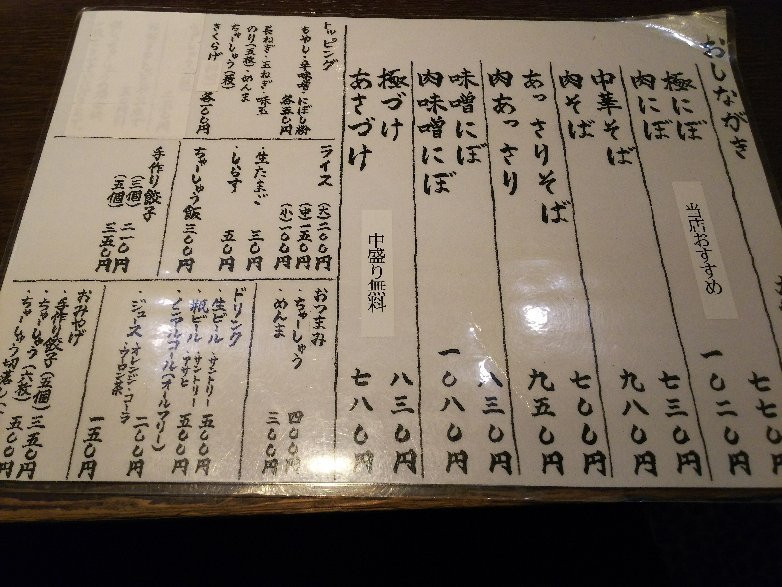 おしながき
極にぼ 七七〇円
肉にぼ 一〇二〇円
当店おすすめ
中華そば 七三〇円
肉そば 九八〇円
あっさりそば 七〇〇円
肉あっさり 九五〇円
味噌にぼ 八三〇円
肉味噌にぼ 一〇八〇円
極づけ 八三〇円
あさづけ 七八〇円
中盛り無料
トッピング
もやし・辛味噌・にぼし粉 各五〇円
長ねぎ・玉ねぎ・味玉
のり(五枚)・めんま
ちゃーしゅう(一枚)
きくらげ 各一〇〇円
ライス (大)二〇〇円
(中)一五〇円
(小)一〇〇円
・生たまご 三〇円
・しらす 五〇円
ちゃーしゅう飯 三〇〇円
手作り餃子
(三個) 二一〇円
(五個) 三五〇円
おつまみ
・ちゃーしゅう 四〇〇円
めんま 三〇〇円
ドリンク
・生ビール・サントリー 五〇〇円
・瓶ビール・サントリー・アサヒ 五〇〇円
・ノンアルコール(オールフリー)
ジュース オレンジ・コーラ 二〇〇円
・ウーロン茶 一五〇円
おみやげ
・手作り餃子(五個) 三五〇円
・ちゃーしゅう(六枚) 五〇〇円
・ちゃーしゅう切落し